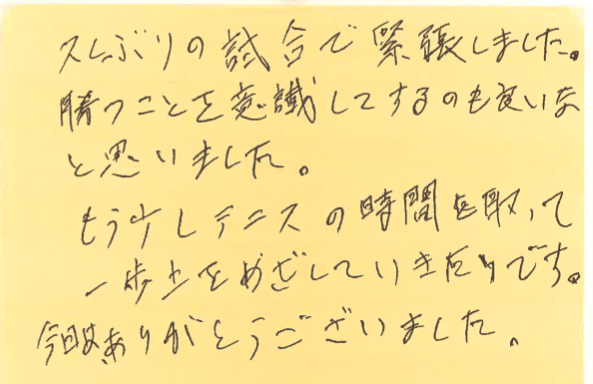 久しぶりの試合で緊張しました。
勝つことを意識してするのも良いな
と思いました。
もう少しテニスの時間を取って
一歩上をめざしていきたいです。
今日はありがとうございました。